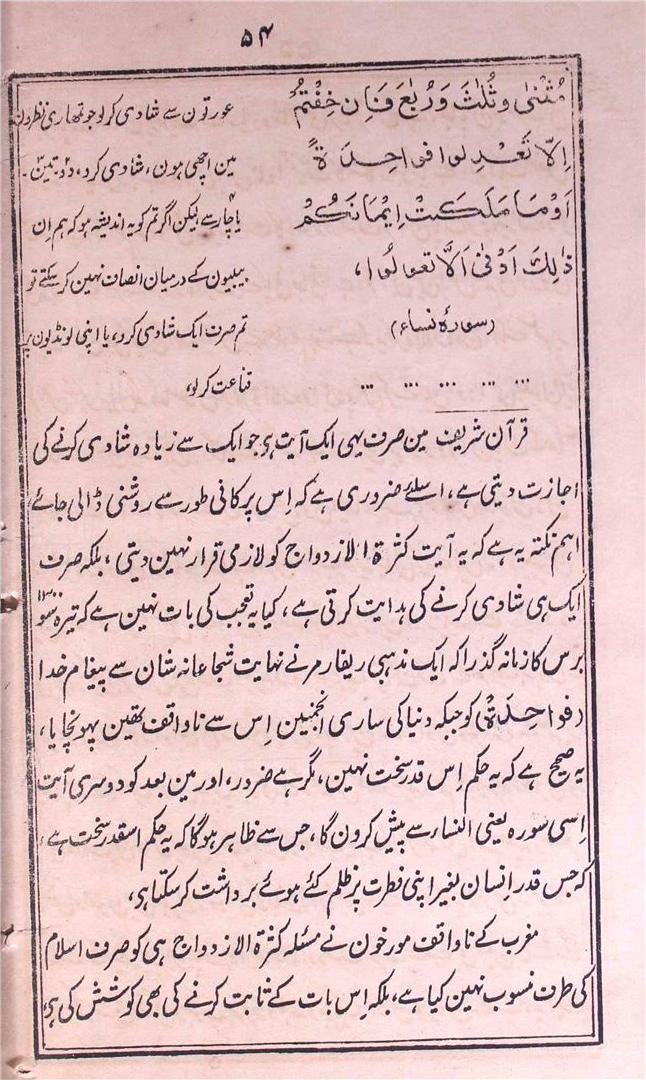 ۵۴
مُثْنٰى وثُلٰثَ وَرُبٰعَ فَاِن خِفْتُمْ
اِلَّا تَعْدِلوا فواحِدَةً
اَوْمَا مَلَكَتْ اِيْمَانَكُمْ
ذٰلِكَ اَدْنٰى اَلَّا تعولُوا،
(سورۂ نساء)
... ... ... ... ...
عورتون سے شادی کرلو جو تمھاری نظرون
مین اچھی ہون، شادی کرو، دو، تین۔
یا چار سے لیکن اگر تم کو یہ اندیشہ ہو کہ ہم اِن
بیبیون کے درمیان انصاف نہین کرسکتے تو
تم صرف ایک شادی کرو، یا اپنی لونڈیون پر
قناعت کرلو،
قرآن شریف مین صرف یہی ایک آیت ہی جو ایک سے زیادہ شادی کرنے کی
اجازت دیتی ہے، اسلئے ضروری ہے کہ اِس پر کافی طور سے روشنی ڈالی جائے،
اہم نکتہ یہ ہے کہ یہ آیت کثرۃ الازدواج کو لازمی قرار نہین دیتی، بلکہ صرف
ایک ہی شادی کرنے کی ہدایت کرتی ہے، کیا یہ تعجب کی بات نہین ہے کہ تیرہ سو
برس کا زمانہ گذرا کہ ایک مذہبی ریفارمر نے نہایت شجاعانہ شان سے پیغام خدا
(فواحِدَۃً) کو جبکہ دنیا کی ساری انجمنین اِس سے ناواقف تھین پہونچایا،
یہ صحیح ہے کہ یہ حکم اِس قدر سخت نہین، مگر ہے ضرور، اور مین بعد کو دوسری آیت
اِسی سورہ یعنی النساء سے پیش کرون گا، جس سے ظاہر ہوگا کہ یہ حکم اسقدر سخت ہے،
کہ جس قدر اِنسان بغیر اپنی فطرت پر ظلم کئے ہوئے برداشت کرسکتا ہی،
مغرب کے ناواقف مورخون نے مسئلہ کثرۃ الازدواج ہی کو صرف اسلام
کی طرف منسوب نہین کیا ہے، بلکہ اِس بات کے ثابت کرنے کی بھی کوشش کی ہی،